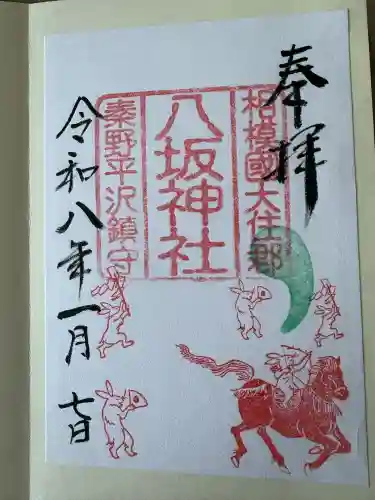 奉拝
相模國大住郷
八坂神社
秦野平沢鎮守
令和八年一月七日